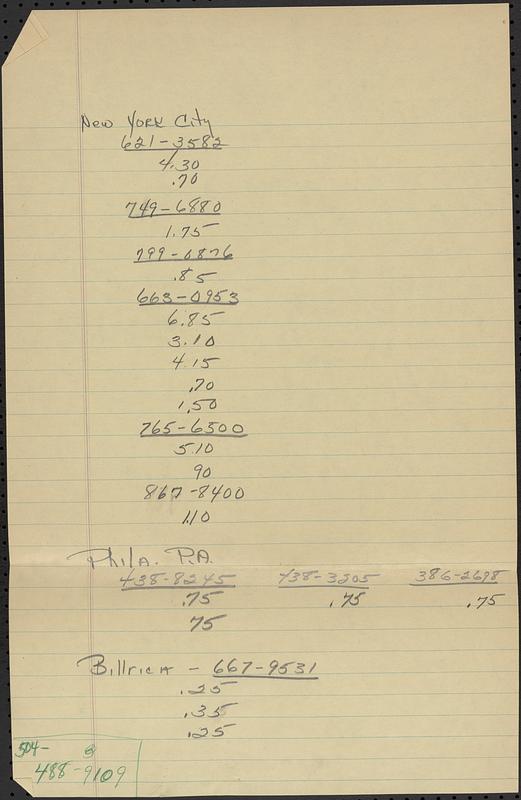 New York City
621-3582
4.30
.70
749-6880
1.75
799-0876
.85
663-0953
6.85
3.10
4.15
.70
1.50
765-6500
5.10
90
867-8400
1.10
Phila. P.A.
438-8245 438-3205 386-2698
.75 .75 .75
75
Billrica - 667-9531
.25
.35
.25
504-
488-9109